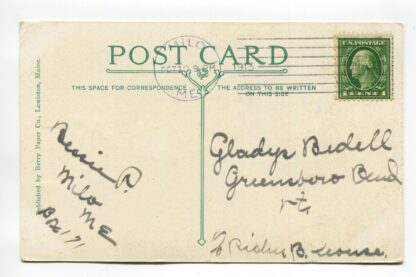 POST CARD
MILO
OCT 9 PM 1913
ME.
U.S. POSTAGE
1 CENT 1
THIS SPACE FOR CORRESPONDENCE
THE ADDRESS TO BE WRITTEN
ON THIS SIDE
Published by Berry Paper Co., Lewiston, Maine.
Bessie R.
Milo
Me
Box 171
Gladys Bedell
Greensboro Bend
Vt
℅ Riches B. House.